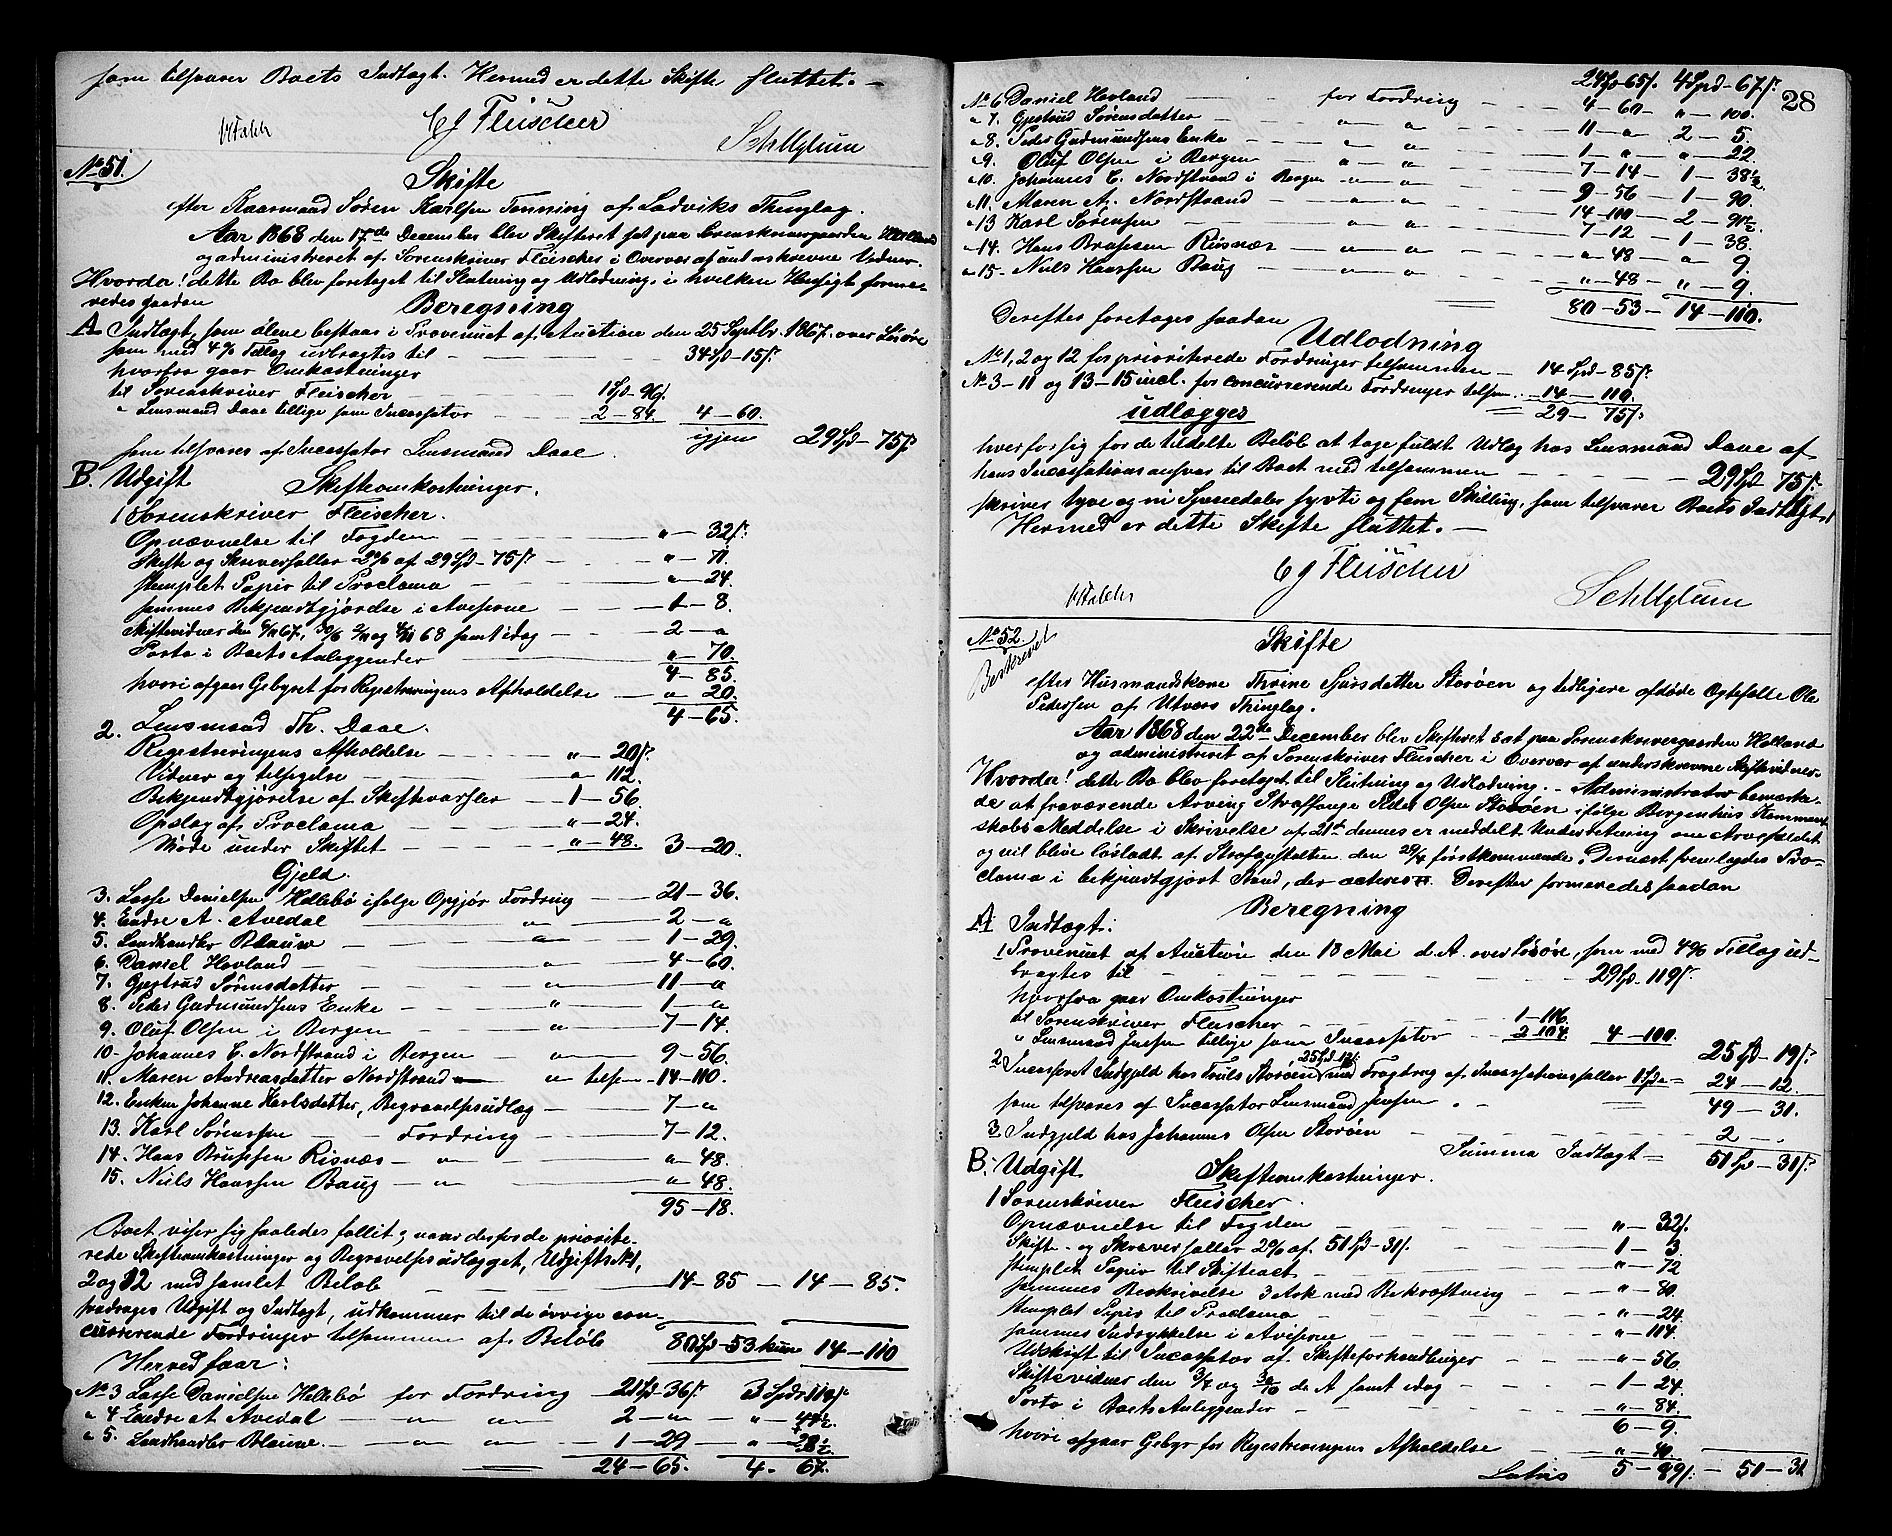 som tilsvarer Boets Indtægt. Hermed er dette Skifte sluttet. —
CJ Fleischer
No 51.
Skifte
efter Kaarmand Søren Karlsen Tenning af Ladviks Thinglag.
Aar 1868 den 17de December blev Skifteret sat paa Sorenskrivergaarden Holland
og administreret af Sorenskriver Fleischer i Overvær af undertskrevne Vidner.
Hvorda! dette Bo blev foretaget til Slutning og Udlodning, i hvilken Hensigt forme-
redes saadan
Beregning
A Indtægt, som alene bestaar i Provenuet af Auction den 25 Septbr. 1867 over Løsøre
som med 4% Tillæg udbragtes til — 34 Spd - 15 s.
hvorfra gaar Omkostninger
til Sorenskriver Fleischer — 1 Spd - 96 s.
" Lensmand Daae tillige som Incassator — 2 - 84. 4 - 60.
igjen 29 Spd - 75 s.
som tilsvares af Incassator Lensmand Daae.
B. Udgift Skifteomkostninger.
1 Sorenskriver Fleischer.
Opnævnelse til Fogden — " - 32 s.
Skifte og Skriversaller 2% af 29 Spd - 75 s. — " - 71.
stemplet Papir til Proclama — " - 24.
sammes Bekjendtgjørelse i Aviserne — 1 - 8.
Skiftevidner den 67, 68 samt idag — 2 - "
Porto i Boets Anliggender — " - 70.
4 - 85.
hvori afgaar Gebyret for Registreringens Afholdelse — " 20.
4 - 65.
2. Lensmand Th. Daae.
Registreringens Afholdelse — " - 20 s.
Vidner og tilsigelse — " 112.
Bekjendtgjørelse af Skiftevarsler — 1 - 56.
Opslag af Proclama — " - 24.
Møde under Skiftet — " - 48. 3 - 20.
Gjeld.
3. Lasse Danielsen Hellebø ifølge Opgjør Fordring — 21 - 36.
4. Endre A. Avedal " — 2 - "
5. Landhandler Blauw — " — 1 - 29.
6. Daniel Hovland — " — 4 - 60.
7. Gjertrud Sørensdatter — " — 11 - "
8. Peder Gudmundsens Enke — " — 1 - "
9. Oluf Olsen i Bergen — " — 7 - 14.
10. Johannes C. Nordstrand i Bergen — " — 9 - 56.
11. Maren Andreasdatter Nordstrand — " tilsm - 14 - 110.
12. Enken Johanne Karlsdatter, Begravelsesudlæg — 7 - "
13. Karl Sørensen — Fordring — 7 - 12.
14. Hans Brussen Risnæs — " — " - 48.
15. Niels Hanssen Baug — " — " - 48.
95 - 18.
Boet viser sig saaledes fallit; naar derfor de priorite-
rede Skifteomkostninger og Begravelsesudlægget, Udgifts No 1,
2 og 12 med samlet Beløb — 14 - 85 — 14 - 85.
fradrages Udgift og Indtægt, udkommer til de øvrige con-
currerende Fordringer tilsammen af Beløb 80 Spd - 53 kun 14 - 110
Herved faar:
No 3 Lasse Danielsen Hellebø for Fordring — 21 Spd - 36 s. 3 Spd 114 s.
" 4 Endre A Avedal — " " — 2 - " — " - 44½
" 5. Landhandler Blauw. — " " — 1 - 29 — " - 28½
24 - 65. 4 - 67.
28
24 Spd 65 s. 4 Spd - 67 s.
No 6 Daniel Hovland — for Fordring — 4 - 60 - " - 100.
" 7. Gjertrud Sørensdatter — " " 11 - " 2 - 5
" 8. Peder Gudmundsens Enke — " " 1 - " " - 22.
" 9. Oluf Olsen i Bergen — " " 7 - 14 - 1 - 38½
" 10. Johannes C. Nordstrand i Bergen — " " 9 - 56 - 1 - 90.
" 11. Maren A. Nordstrand — " " 14 - 110 - 2 - 91½
" 13 Karl Sørensen — " " 7 - 12 - 1 - 38.
" 14. Hans Brussen Risnæs " " " - 48 - " 9.
" 15 - Niels Hanssen Baug — " " " - 48 - " - 9.
80 - 53 - 14 - 110.
Derefter foretages saadan
Udlodning
No 1, 2 og 12 for prioriterede Fordringer tilsammen — 14 Spd - 85 s.
No 3 - 11 og 13 - 15 incl. for concurrerende Fordringer tilsm. 14 - 110.
29 - 75 s.
udlægges
hver for sig for de tildelte Beløb at tage fuldt Udlæg hos Lensmand Daae af
hans Incassationsansvar til Boet med tilsammen — 29 Spd 75 s.
skriver tyve og ni Speciedaler syvti og fem Skilling, som tilsvarer Boets Indtægt.
Hermed er dette Skifte sluttet. —
CJ Fleischer
No 52.
Beskrevet
Skifte
efter Husmandskone Thrine Sjursdatter Storøen og tidligere afdøde Ægtefælle Ole
Pedersen af Utvær Thinglag.
Aar 1868 den 22de December blev Skifteret sat paa Sorenskrivergaarden Holland
og administreret af Sorenskriver Fleischer i Overvær af underskrevne Skiftevidner.
Hvorda! dette Bo blev foretaget til Slutning og Udlodning. — Administrator bemærke-
de at fraværende Arving Straffange Peder Olsen Storøen ifølge Bergenhus Kommant-
skabs Meddelse i Skrivelse af 21de dennes er meddelt Underretning om Arvefaldet
og vil blive løsladt af Strafanstalten den 29/4 førstkommende. Dernæst fremlagdes Pro-
clama i bekjendtgjort Stand, der acteres. Derefter formeredes saadan
Beregning
A Indtægt:
1. Provenuet af Auction den 18 Mai d. A. over Løsøre, som med 4% Tillæg ud-
bragtes til — 29 Spd - 119 s.
hvorfra gaar Omkostninger
til Sorenskriver Fleischer — 1 - 116.
" Lensmand Jensen tillige som Incassator — 2 104. 4 - 100.
25 Spd - 19 s.
2. Incasseret Indgjeld hos Truls Storøen 25 Spd 12 s. med Fragdrag af Incassationssaller 1 Spd = 24 - 12.
som tilsvares af Incassator Lensmand Jensen. — 49 - 31.
3. Indgjeld hos Johannes Olsen Storøen — 2 - .
Summa Indtægt = 51 Spd - 31 s.
B. Udgift Skifteomkostninger.
1 Sorenskriver Fleischer.
Opnævnelse til Fogden — " - 32 s.
Skifte- og Skriversaller 2% af 51 Spd - 31 s. — 1 - 3.
stemplet Papir til Skifteact — " - 72
sammes Beskrivelse 3 Ark med Bekræftning — " - 80.
stemplet Papir til Proclama — " - 24.
sammes Indrykkelse i Aviserne — " - 114.
Udskrift til Incassator af Skifteforhandlinger — " - 56.
Skiftevidner den 3/4 og 30/10 d. A samt idag — 1 - 24.
Porto i Boets Anliggender — " - 84.
6 - 9.
hvori afgaar Gebyr for Registreringens Afholdelse — " 40.
Latus 5 - 89 s. — 51 - 31